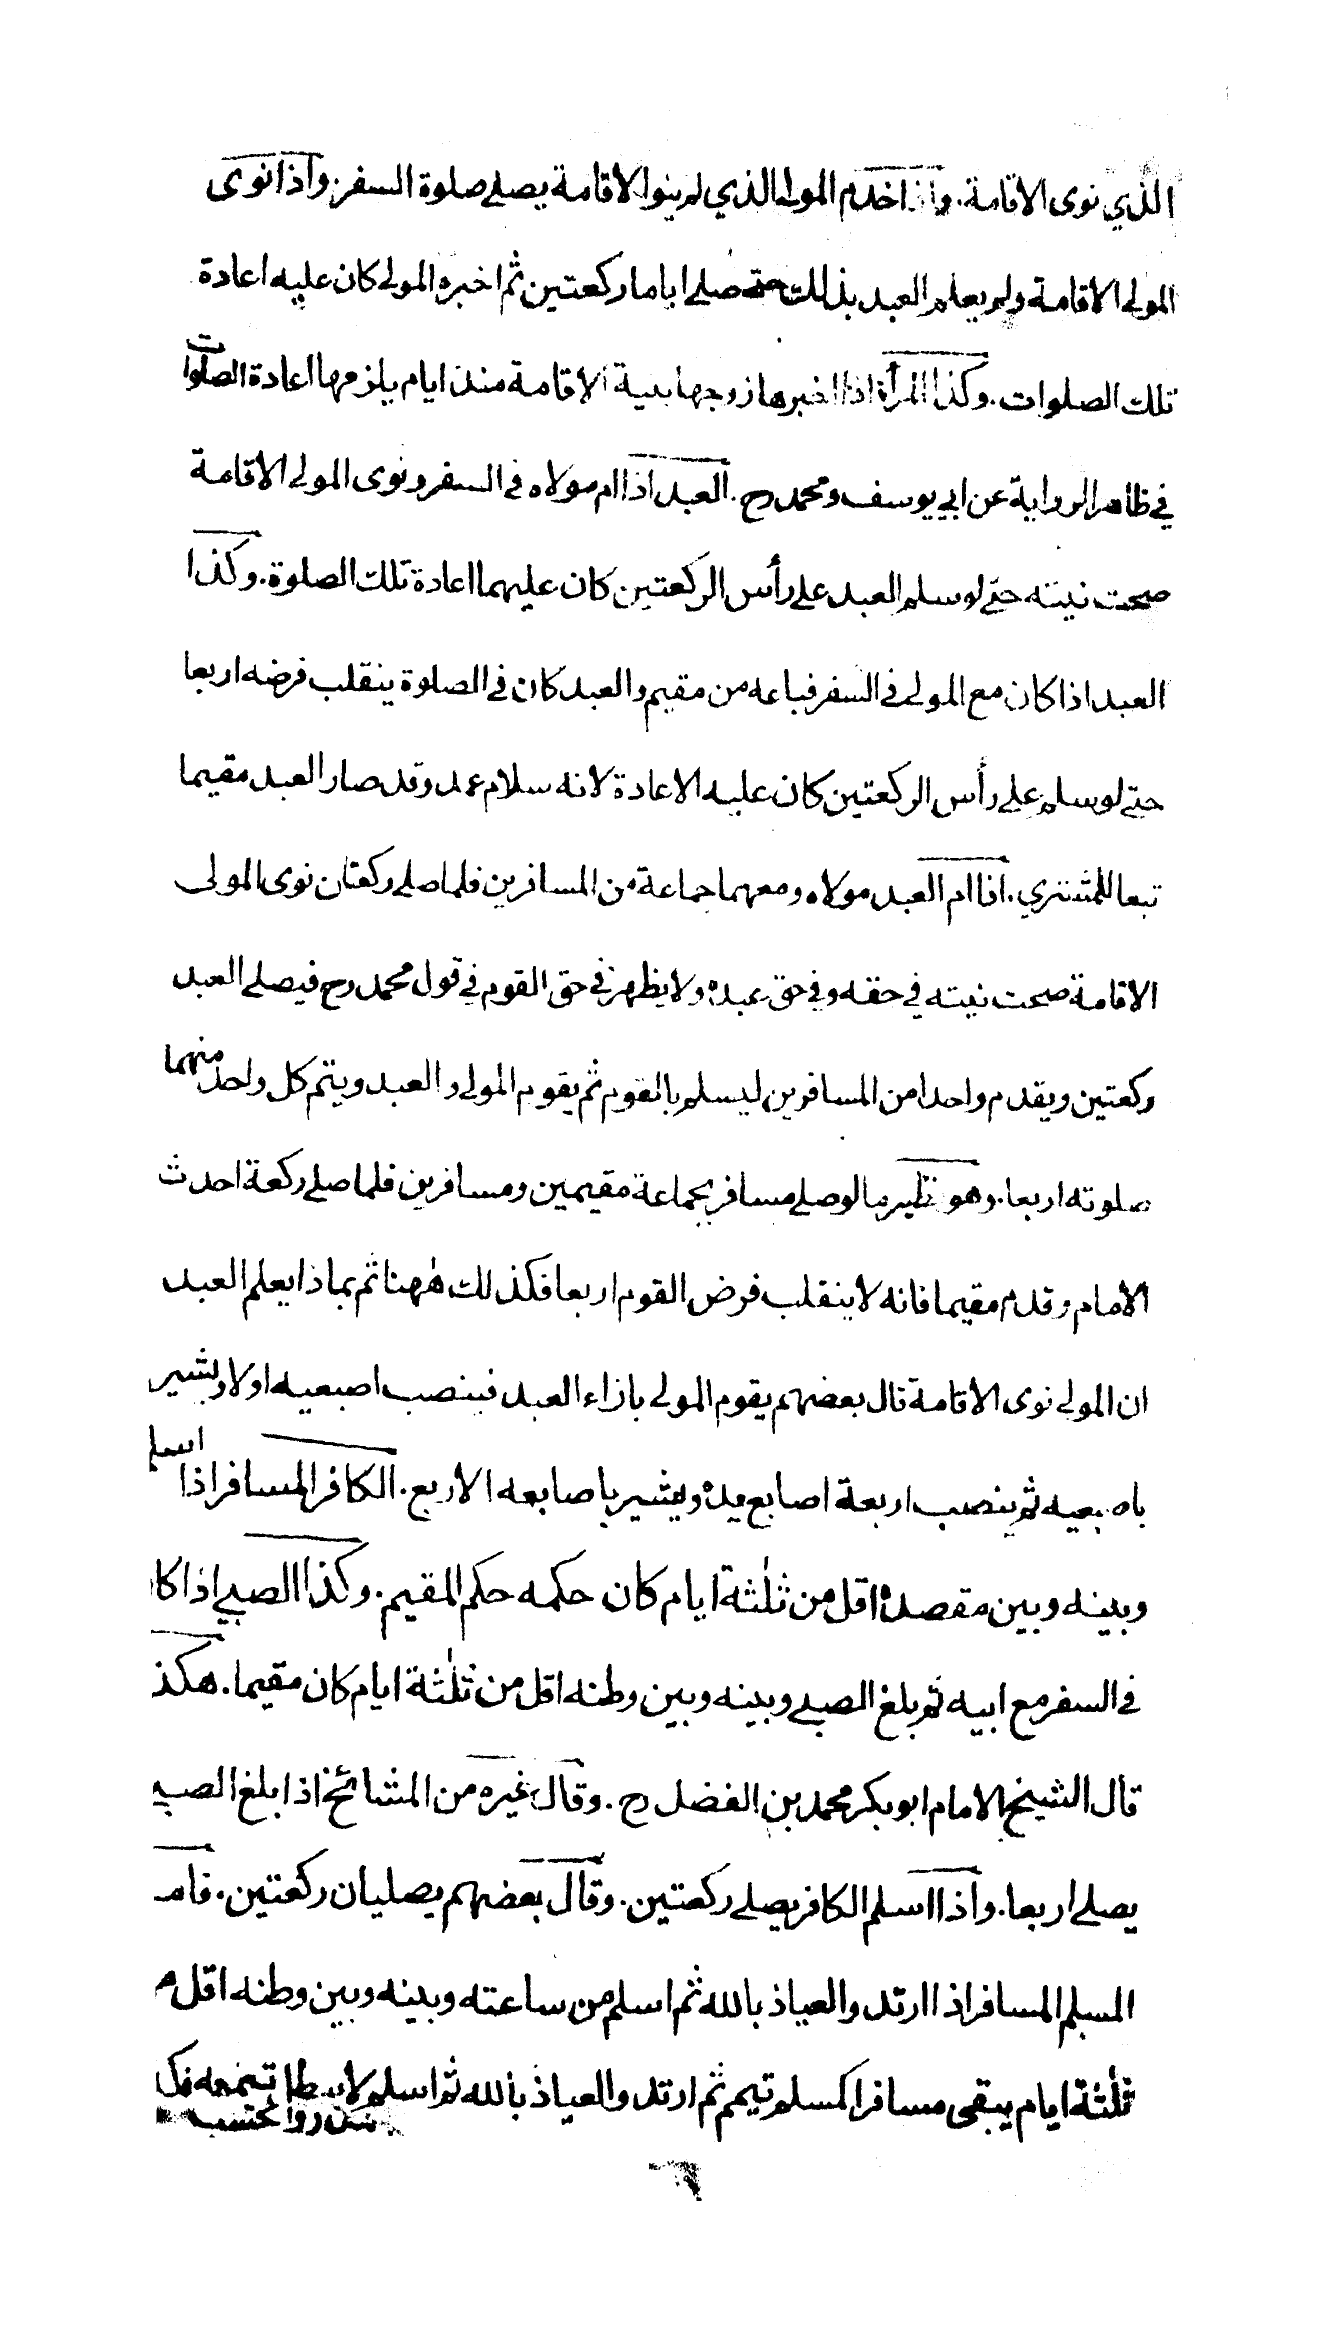 الذي نوى الاقامة. واذا خدم المولى الذي لم ينوا لاقامة يصلي صلوة السفر. واذا نوى
المولى الاقامة ولم يعلم العبد بذلك حتى صلى اياما ركعتين ثم اخبره المولى كان عليه اعادة
تلك الصلوات. وكذا المرأة اذا اخبرها زوجها بنية الاقامة منذ ايام يلزمها اعادة الصلوات
في ظاهر الرواية عن ابي يوسف ومحمد رح. العبد اذا ام مولاه في السفر ونوى المولى الاقامة
صحت نيته حتى لو سلم العبد على رأس الركعتين كان عليهما اعادة تلك الصلوة. وكذا
العبد اذا كان مع المولى في السفر فباعه من مقيم والعبد كان في الصلوة ينقلب فرضه اربعا
حتى لو سلم على رأس الركعتين كان عليه الاعادة لانه سلام عمد وقد صار العبد مقيما
تبعا للمشتري. اذا ام العبد مولاه ومعهما جماعة من المسافرين فلما صلى ركعتان نوى المولى
الاقامة صحت نيته في حقه وفي حق عبده ولا يظهر في حق القوم في قول محمد رح فيصلي العبد
ركعتين ويقدم واحدا من المسافرين ليسلم بالقوم ثم يقوم المولى والعبد ويتم كل واحد منهما
صلوته اربعا. وهو نظير ما لو صلى مسافر بجماعة مقيمين ومسافرين فلما صلى ركعة احدث
الامام وقدم مقيما فانه لا ينقلب فرض القوم اربعا فكذلك ههنا ثم بماذا يعلم العبد
ان المولى نوى الاقامة قال بعضهم يقوم المولى بازاء العبد فينصب اصبعيه اولا ويشير
باصبعيه ثم ينصب اربعة اصابع يده ويشير باصابعه الاربع. الكافر المسافر اذا اسلم
وبينه وبين مقصده اقل من ثلٰثة ايام كان حكمه حكم المقيم. وكذا الصبي اذا كا
في السفر مع ابيه ثم بلغ الصبي وبينه وبين وطنه اقل من ثلٰثة ايام كان مقيما. هكذ
قال الشيخ الامام ابو بكر محمد بن الفضل رح. وقال غيره من المشائخ اذا بلغ الصبي
يصلي اربعا. واذا اسلم الكافر يصلي ركعتين. وقال بعضهم يصليان ركعتين. فاما
المسلم المسافر اذا ارتد والعياذ بالله ثم اسلم من ساعته وبينه وبين وطنه اقل م
ثلٰثة ايام يبقى مسافرا كمسلم تيمم ثم ارتد والعياذ بالله ثم اسلم لا يبطل تيممه